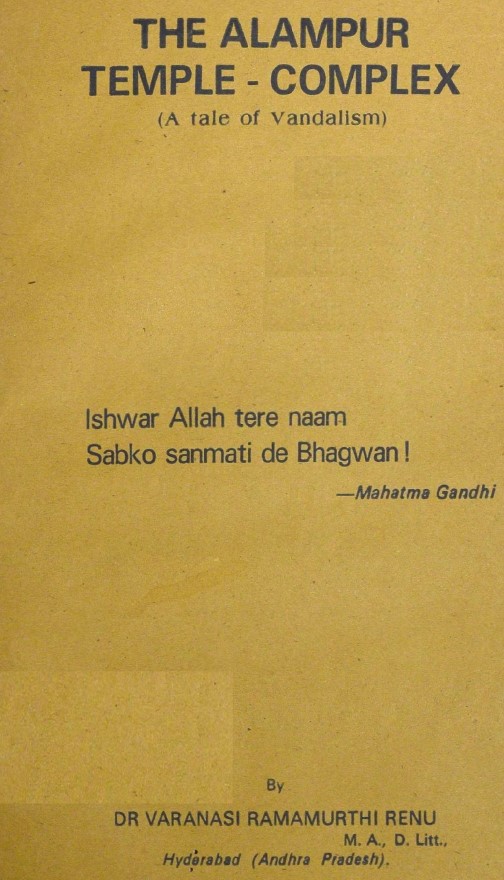 THE ALAMPUR
TEMPLE - COMPLEX
(A tale of Vandalism)
Ishwar Allah tere naam
Sabko sanmati de Bhagwan !
—Mahatma Gandhi
By
DR VARANASI RAMAMURTHI RENU
M. A., D. Litt.,
Hyderabad (Andhra Pradesh).